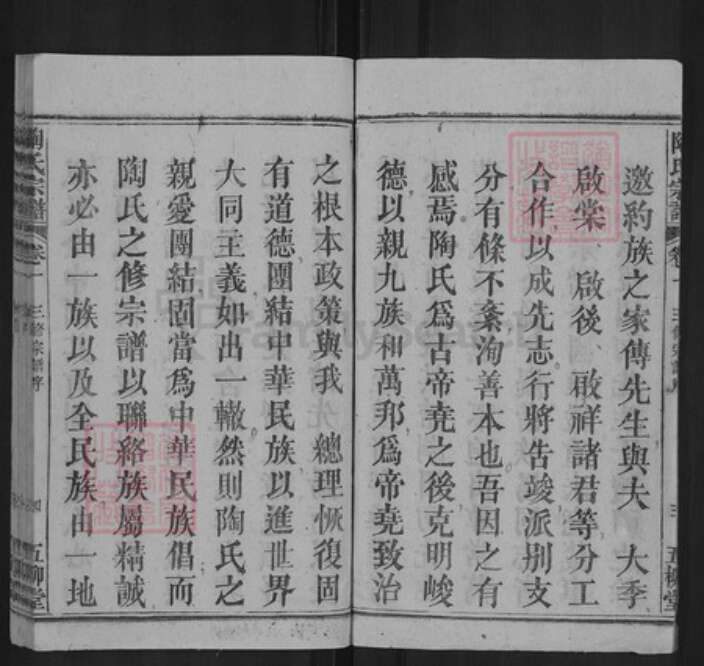 邀約族之家傳先生與夫　大季
啟棠　啟後　啟祥諸君等分工
合作以成先志行將告竣派別支
分有條不紊洵善本也吾因之有
感焉陶氏爲古帝堯之後克明峻
德以親九族和萬邦爲帝堯致治
陶氏宗譜　卷一　三修宗譜序　三　五柳堂
之根本政策與我　總理恢復固
有道德團結中華民族以進世界
大同主義如出一轍然則陶氏之
親愛團結固當爲中華民族倡而
陶氏之修宗譜以聯絡族屬精誠
亦必由一族以及全民族由一地
陶氏宗譜　卷一　三修宗譜序　五柳堂